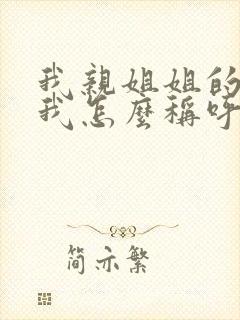 我親姐姐的
我怎麼稱呼
简示繁